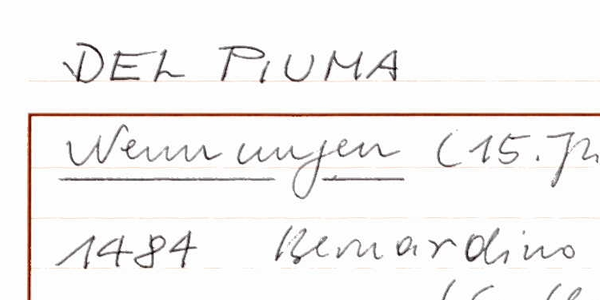 DEL PIUMA
Nennungen (15. Jh
1484 Bernardino